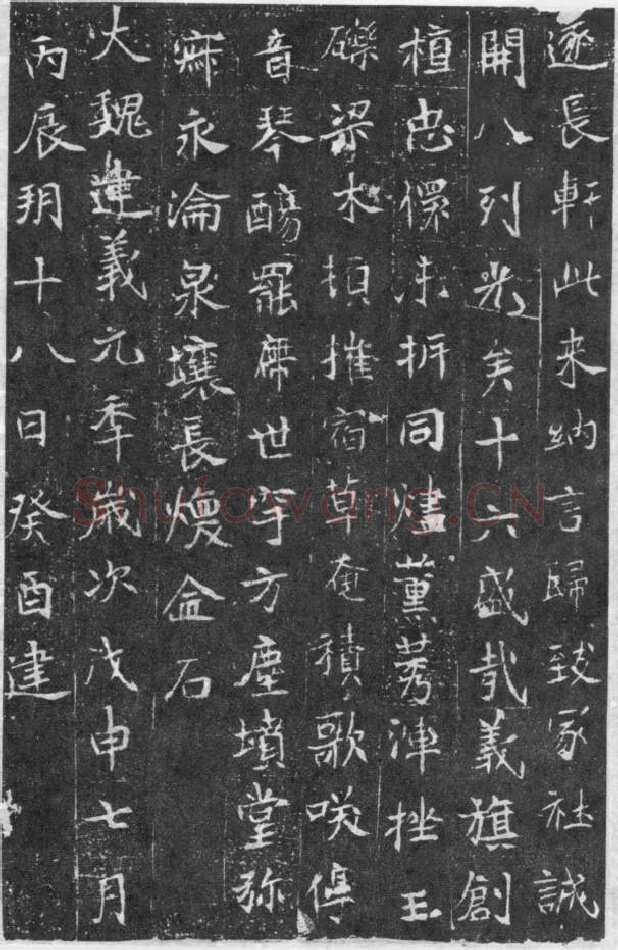 遂長軒此来納言歸致冢社誠
開八列光矣十六盛哉義旗創
樹忠儝未折同燼薰蒡渖挫玉
礫梁木損摧宿草奄積歌咲停
音琴酳罷席世宇方塵墳堂弥
寐永淪泉壤長燰金石
大魏建義元年歲次戊申七月
丙辰朔十八日癸酉建
Shufawang.CN